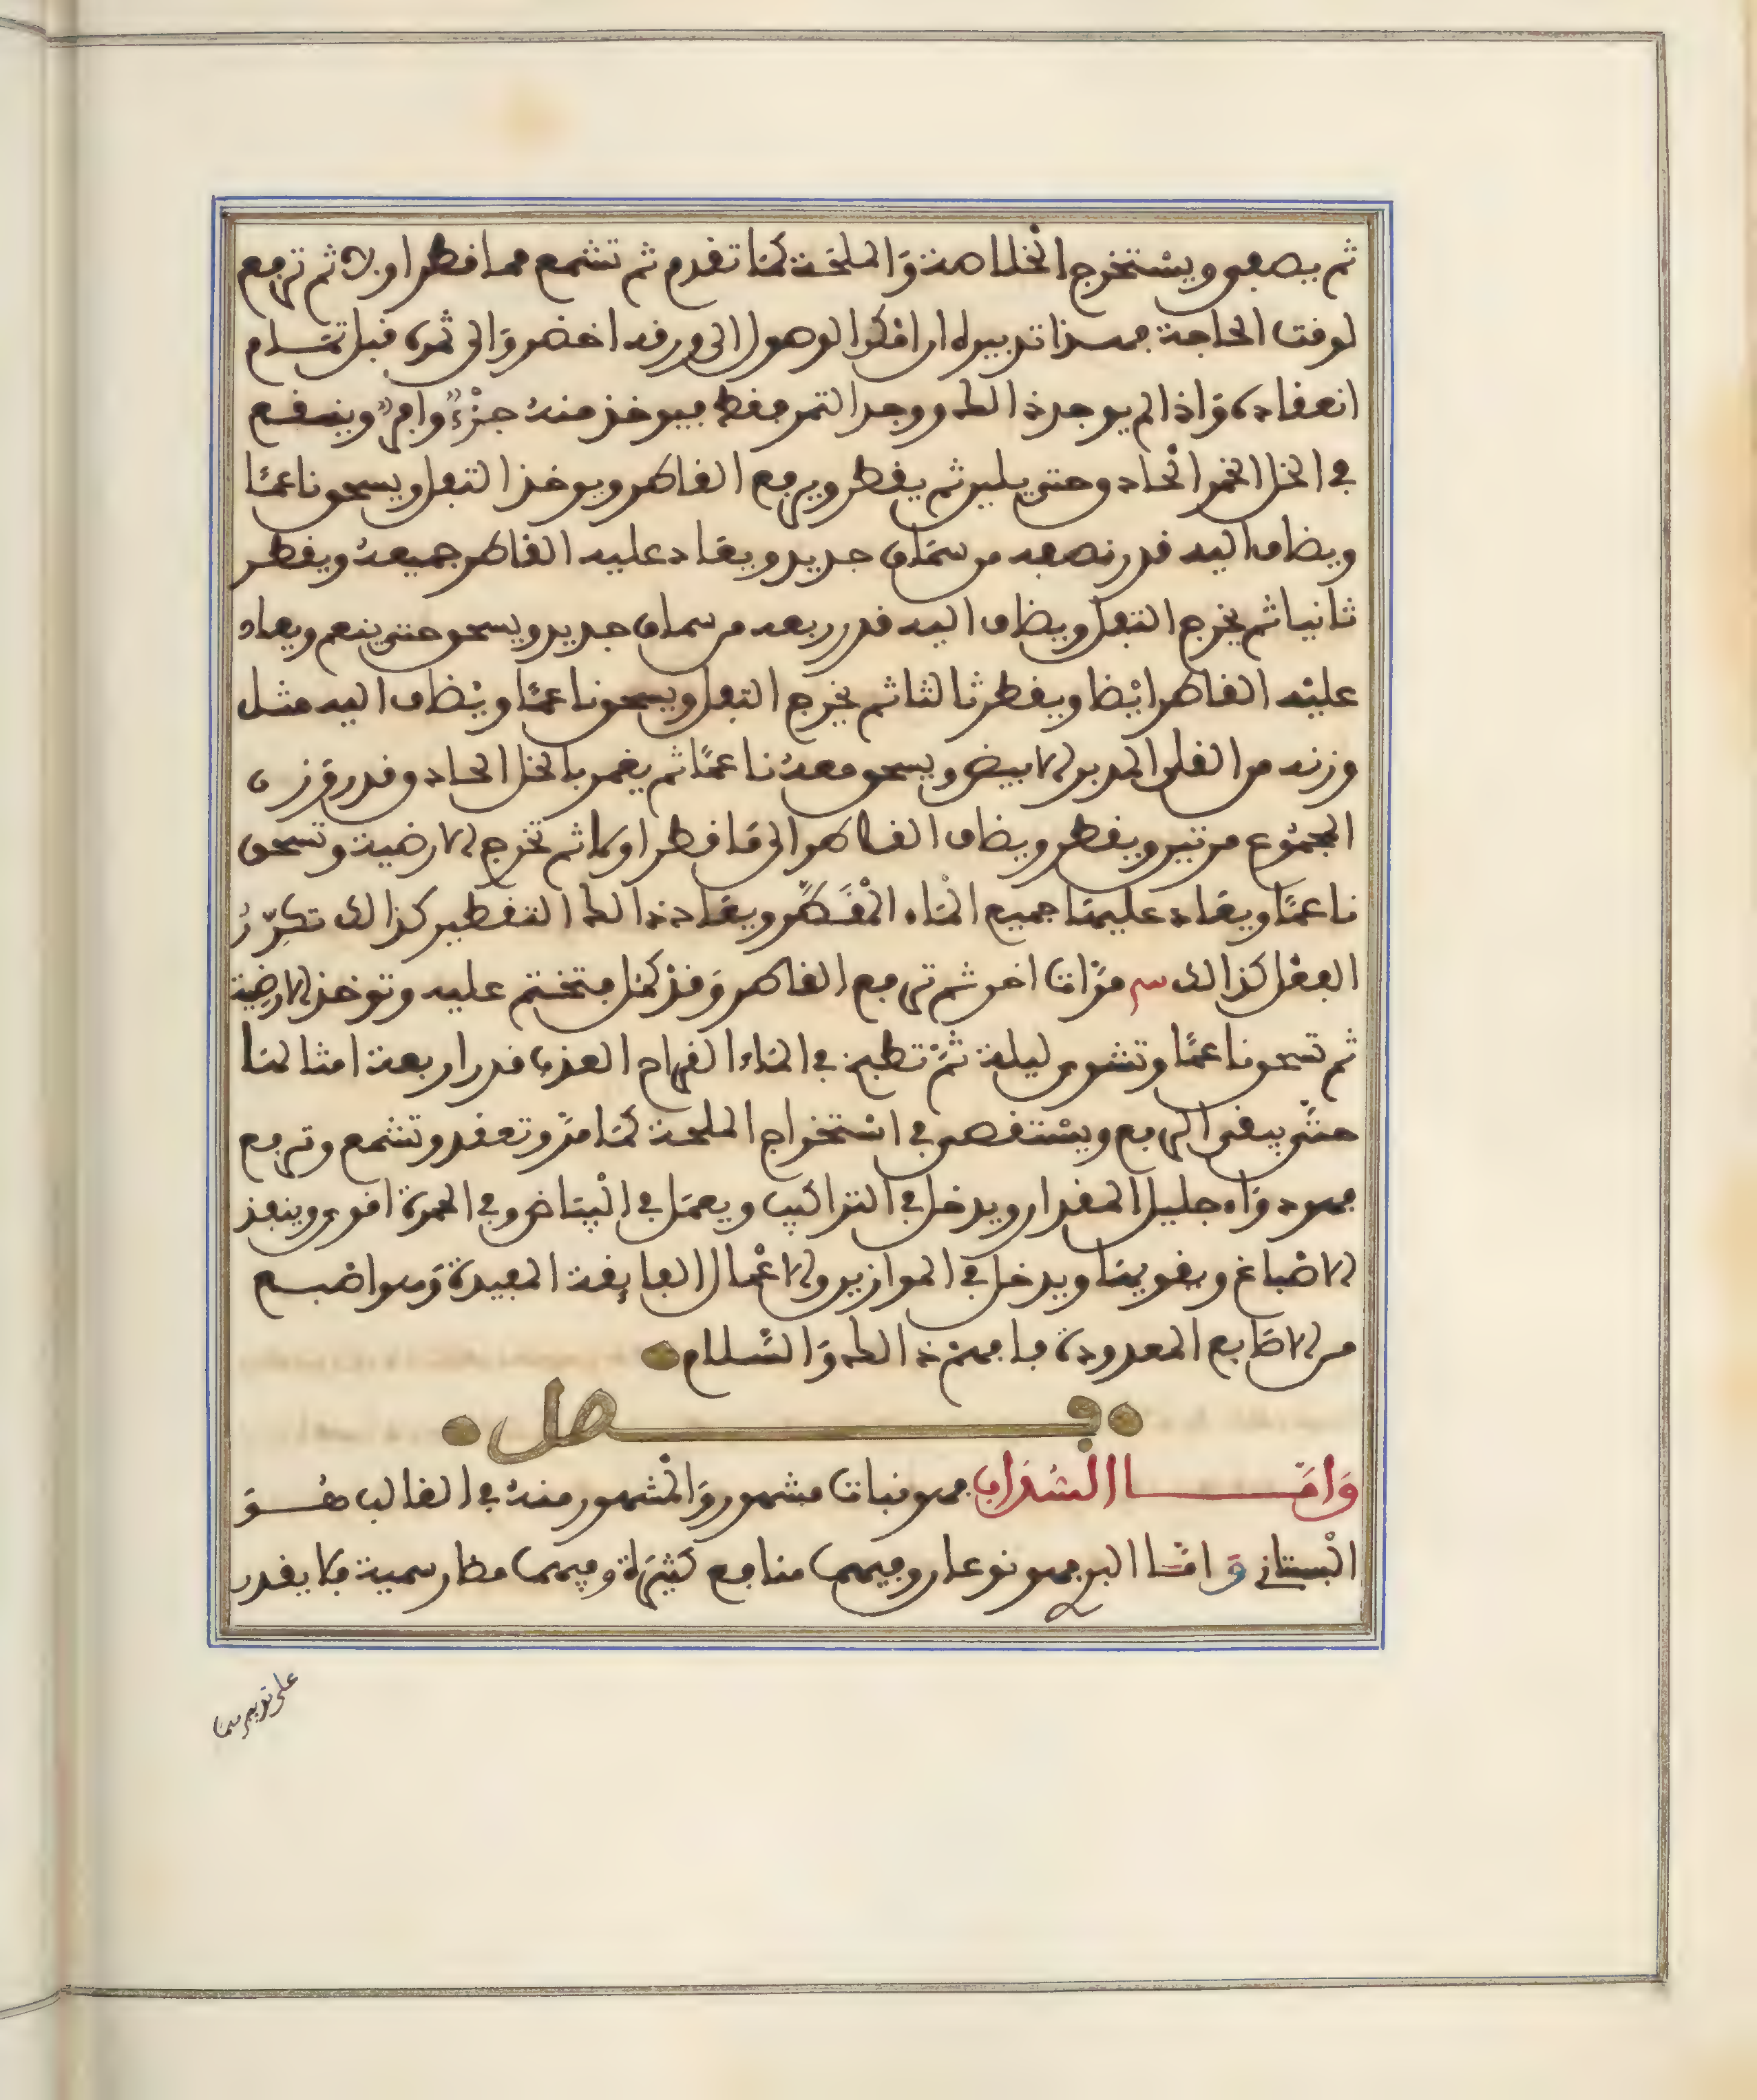 ثم يصفى ويستخرج الخلاصة وَالملحَة كمَا تقدم ثم تشمع مما قطر اولا ثم ترفع
لوقت الحاجة فهذا تدبيره ان امكن الوصول الى ورقه اخضر وَالى ثمره قبل تمَام
انعقاده وَاذا لم يوجد ذالك ووجد الثمر فقط فيوخذ منهُ جزْءٌ وافرٌ وينقع
في الخل الخمر الْحاد وحتى يلين ثم يقطر ويرفع القاطر ويوخذ الثفل ويسحق ناعمًا
ويضاف اليه قدر نصفه من سمَاق جديد ويعَاد عليه القاطر جميعهُ ويقطر
ثانيا ثم يخرج الثفل ويضاف اليه قدر ربعه من سماق جديد ويسحق حتى ينعم ويعاد
عليْه القاطر ايْضا ويقطر ثالثا ثم يخرج الثفل ويسحق ناعمًا ويُضاف اليه مثل
وزنه من القلى المدبر الابيض ويسحق معهُ ناعمًا ثم يغمر بالخل الحاد وقدر وَزن
المجمُوع مرتين ويقطر ويضاف القاطر الى مَا قطر اولا ثم تخرج الارضية وتسحق
ناعمًا ويعَاد عليهَا جميع المَاء الْمُقَطَّر ويعَاد ذالك التقطير كذالك تكرّرُ
الفعْل كذالك مرَّات اخر ثم ترفع القاطر وَقدْ كمَل فتختم عليه وتوخذ الارضِية
ثم تسحق ناعمًا وتشوى ليلة ثمَّ تطبخ في المَاء القراح العذب قدر اربعة امثالهَا
حتَّى يبقى الربع ويسْتقصى في اسْتخراج الملحة كمَا مرَّ وتعقد وتشمع وترفع
فهو دوَاء جليل المقدار ويدخل في التراكيب ويعمَل في الْبيَاض وفي الحمرة اقوى وينفذ
الاصْباغ ويقويهَا ويدخل في الموازين والاعْمال الفايقة المفيدة وَمواضيع
من الاصَابع المعدودة فافهمْ ذالك وَالسَّلام
فصل
وَامَّا السُذَاب فهو نبات مشهور وَالْمشهور منهُ في الغالب هُوَ
الْبستاني وَامَّا البر فهو نوعان وفيهما منافع كثيرَة وفيهما مضار سمية فلا يقدر
على تدبيرهما